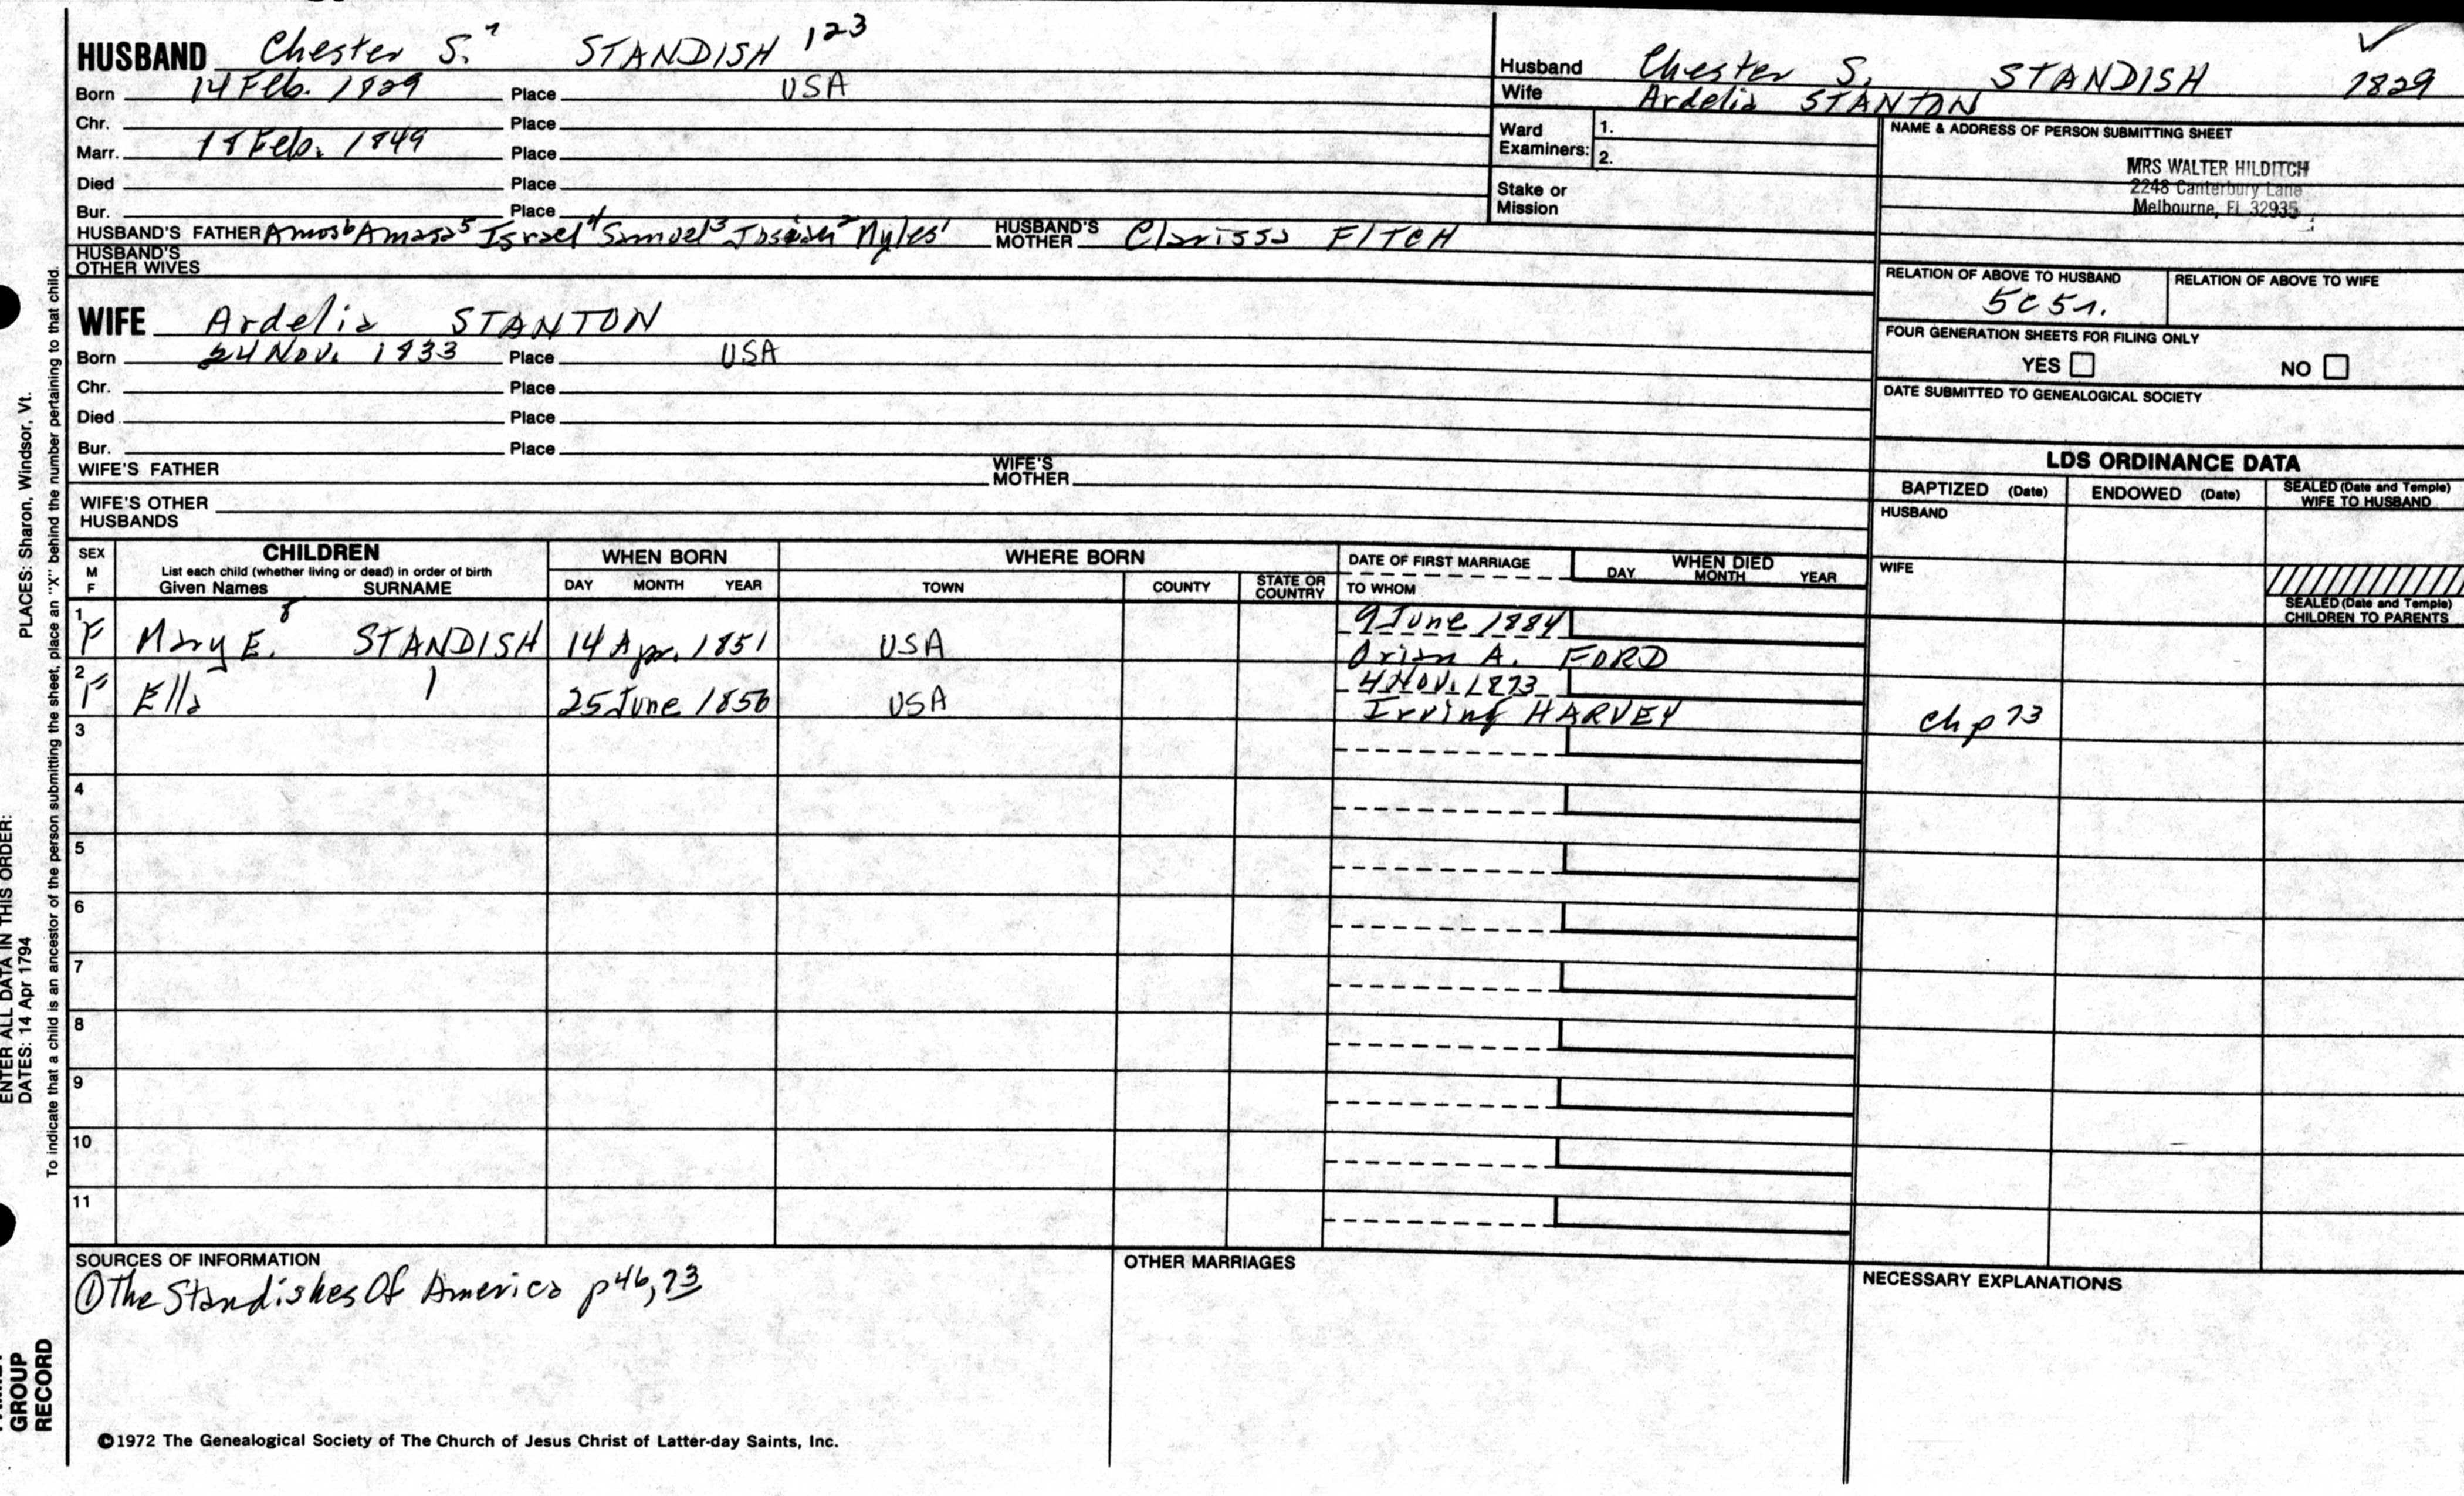 HUSBAND Chester S.⁷ STANDISH 123
Born 14 Feb. 1829 Place USA
Chr. Place
Marr. 18 Feb. 1849 Place
Died Place
Bur. Place
HUSBAND'S FATHER Amos⁶ Amasa⁵ Israel⁴ Samuel³ Josiah² Myles¹ HUSBAND'S MOTHER Clarissa FITCH
HUSBAND'S OTHER WIVES
Husband Chester S. STANDISH 1829
Wife Ardelia STANTON
Ward Examiners: 1.
2.
Stake or Mission
NAME & ADDRESS OF PERSON SUBMITTING SHEET
MRS WALTER HILDITCH
2248 Canterbury Lane
Melbourne, FL 32935
RELATION OF ABOVE TO HUSBAND
5c5r.
RELATION OF ABOVE TO WIFE
FOUR GENERATION SHEETS FOR FILING ONLY
YES NO
DATE SUBMITTED TO GENEALOGICAL SOCIETY
WIFE Ardelia STANTON
Born 24 Nov. 1833 Place USA
Chr. Place
Died Place
Bur. Place
WIFE'S FATHER WIFE'S MOTHER
WIFE'S OTHER HUSBANDS
LDS ORDINANCE DATA
BAPTIZED (Date) ENDOWED (Date) SEALED (Date and Temple) WIFE TO HUSBAND
HUSBAND
WIFE
SEALED (Date and Temple) CHILDREN TO PARENTS
SEX M F
CHILDREN
List each child (whether living or dead) in order of birth
Given Names SURNAME
WHEN BORN
DAY MONTH YEAR
WHERE BORN
TOWN COUNTY STATE OR COUNTRY
DATE OF FIRST MARRIAGE
TO WHOM
WHEN DIED
DAY MONTH YEAR
1 F Mary E.⁸ STANDISH 14 Apr. 1851 USA 9 June 1884
Orian A. FORD
2 F Ella 25 June 1856 USA 4 Nov. 1873
Irving HARVEY
3 ch p 73
4
5
6
7
8
9
10
11
SOURCES OF INFORMATION
① The Standishes Of America p 46, 73
OTHER MARRIAGES
NECESSARY EXPLANATIONS
©1972 The Genealogical Society of The Church of Jesus Christ of Latter-day Saints, Inc.
GROUP
RECORD
ENTER ALL DATA IN THIS ORDER:
DATES: 14 Apr 1794 PLACES: Sharon, Windsor, Vt.
To indicate that a child is an ancestor of the person submitting the sheet, place an "X" behind the number pertaining to that child.